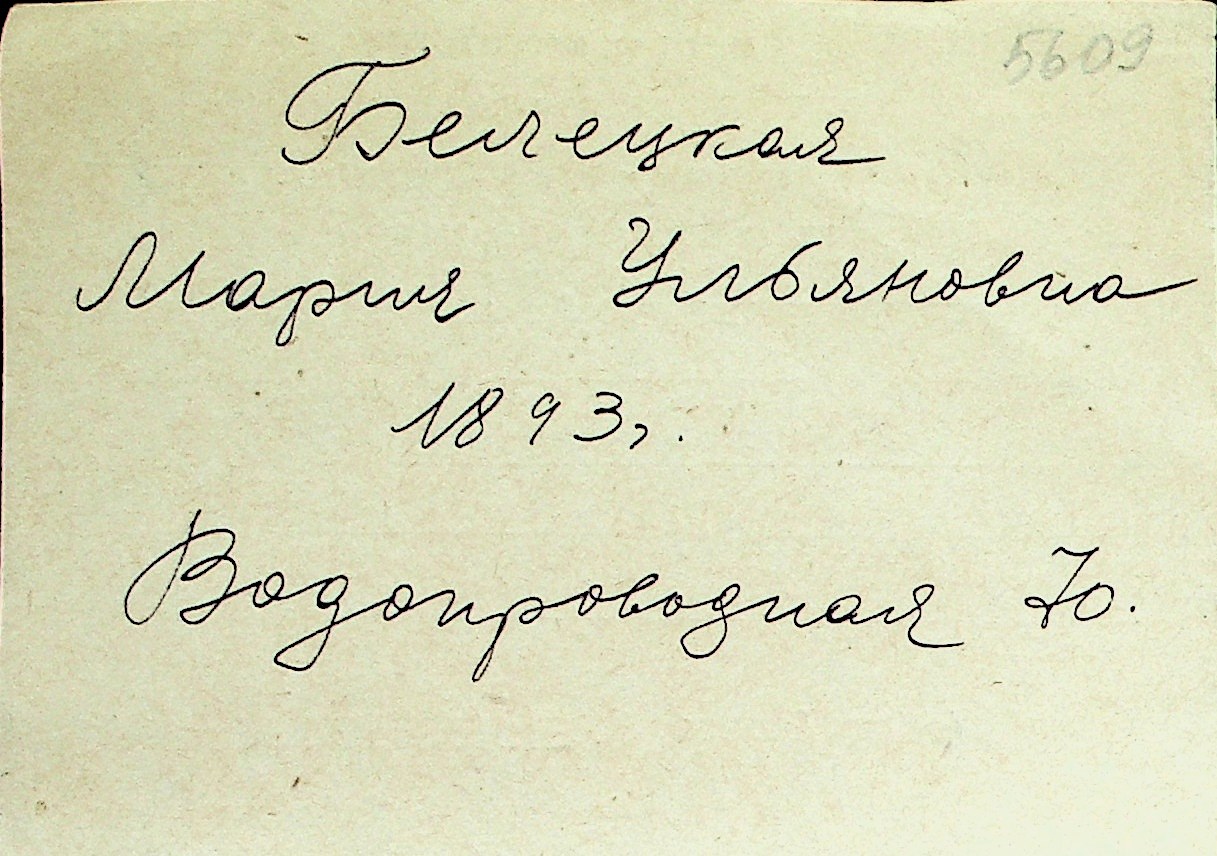 5609
Белецкая
Мария Ульяновна
1893г.
Водопроводная 70.